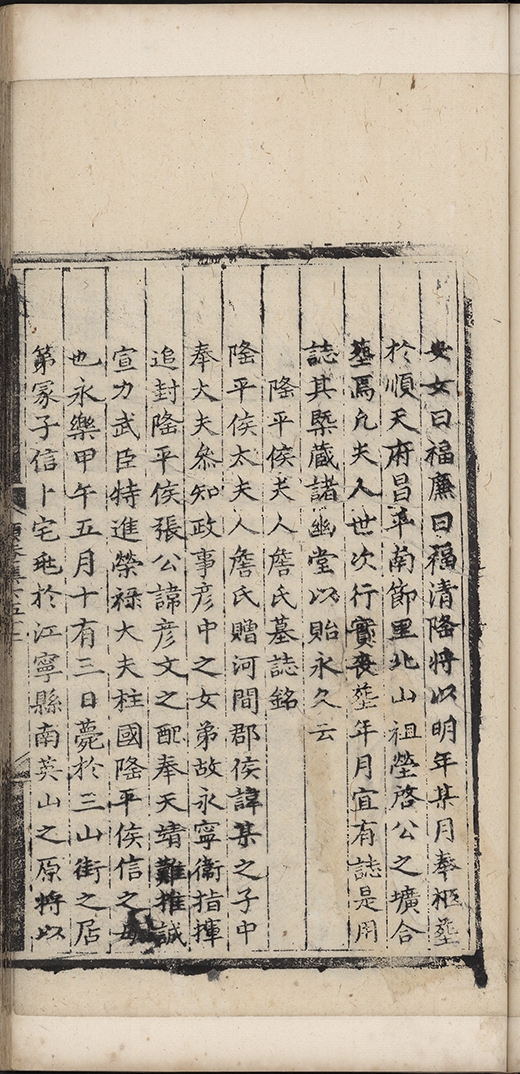 女女曰福廉曰福清隆將以明年某月奉柩塟
於順天府昌平南節里北山祖塋啓公之壙合
塟焉凢夫人世次行實䘮塟年月宜有誌是用
誌其槩蔵諸幽堂以貽永久云
隆平侯夫人詹氏墓誌銘
隆平侯太夫人詹氏贈河間郡侯諱某之子中
奉大夫叅知政事彦中之女弟故永寧衛指揮
追封隆平侯張公諱彦文之配奉天靖難推誠
宣力武臣特進榮祿大夫柱國隆平侯信之母
也永樂甲午五月十有三日薨於三山街之居
第冡子信卜宅兆於江寧縣南英山之原將以